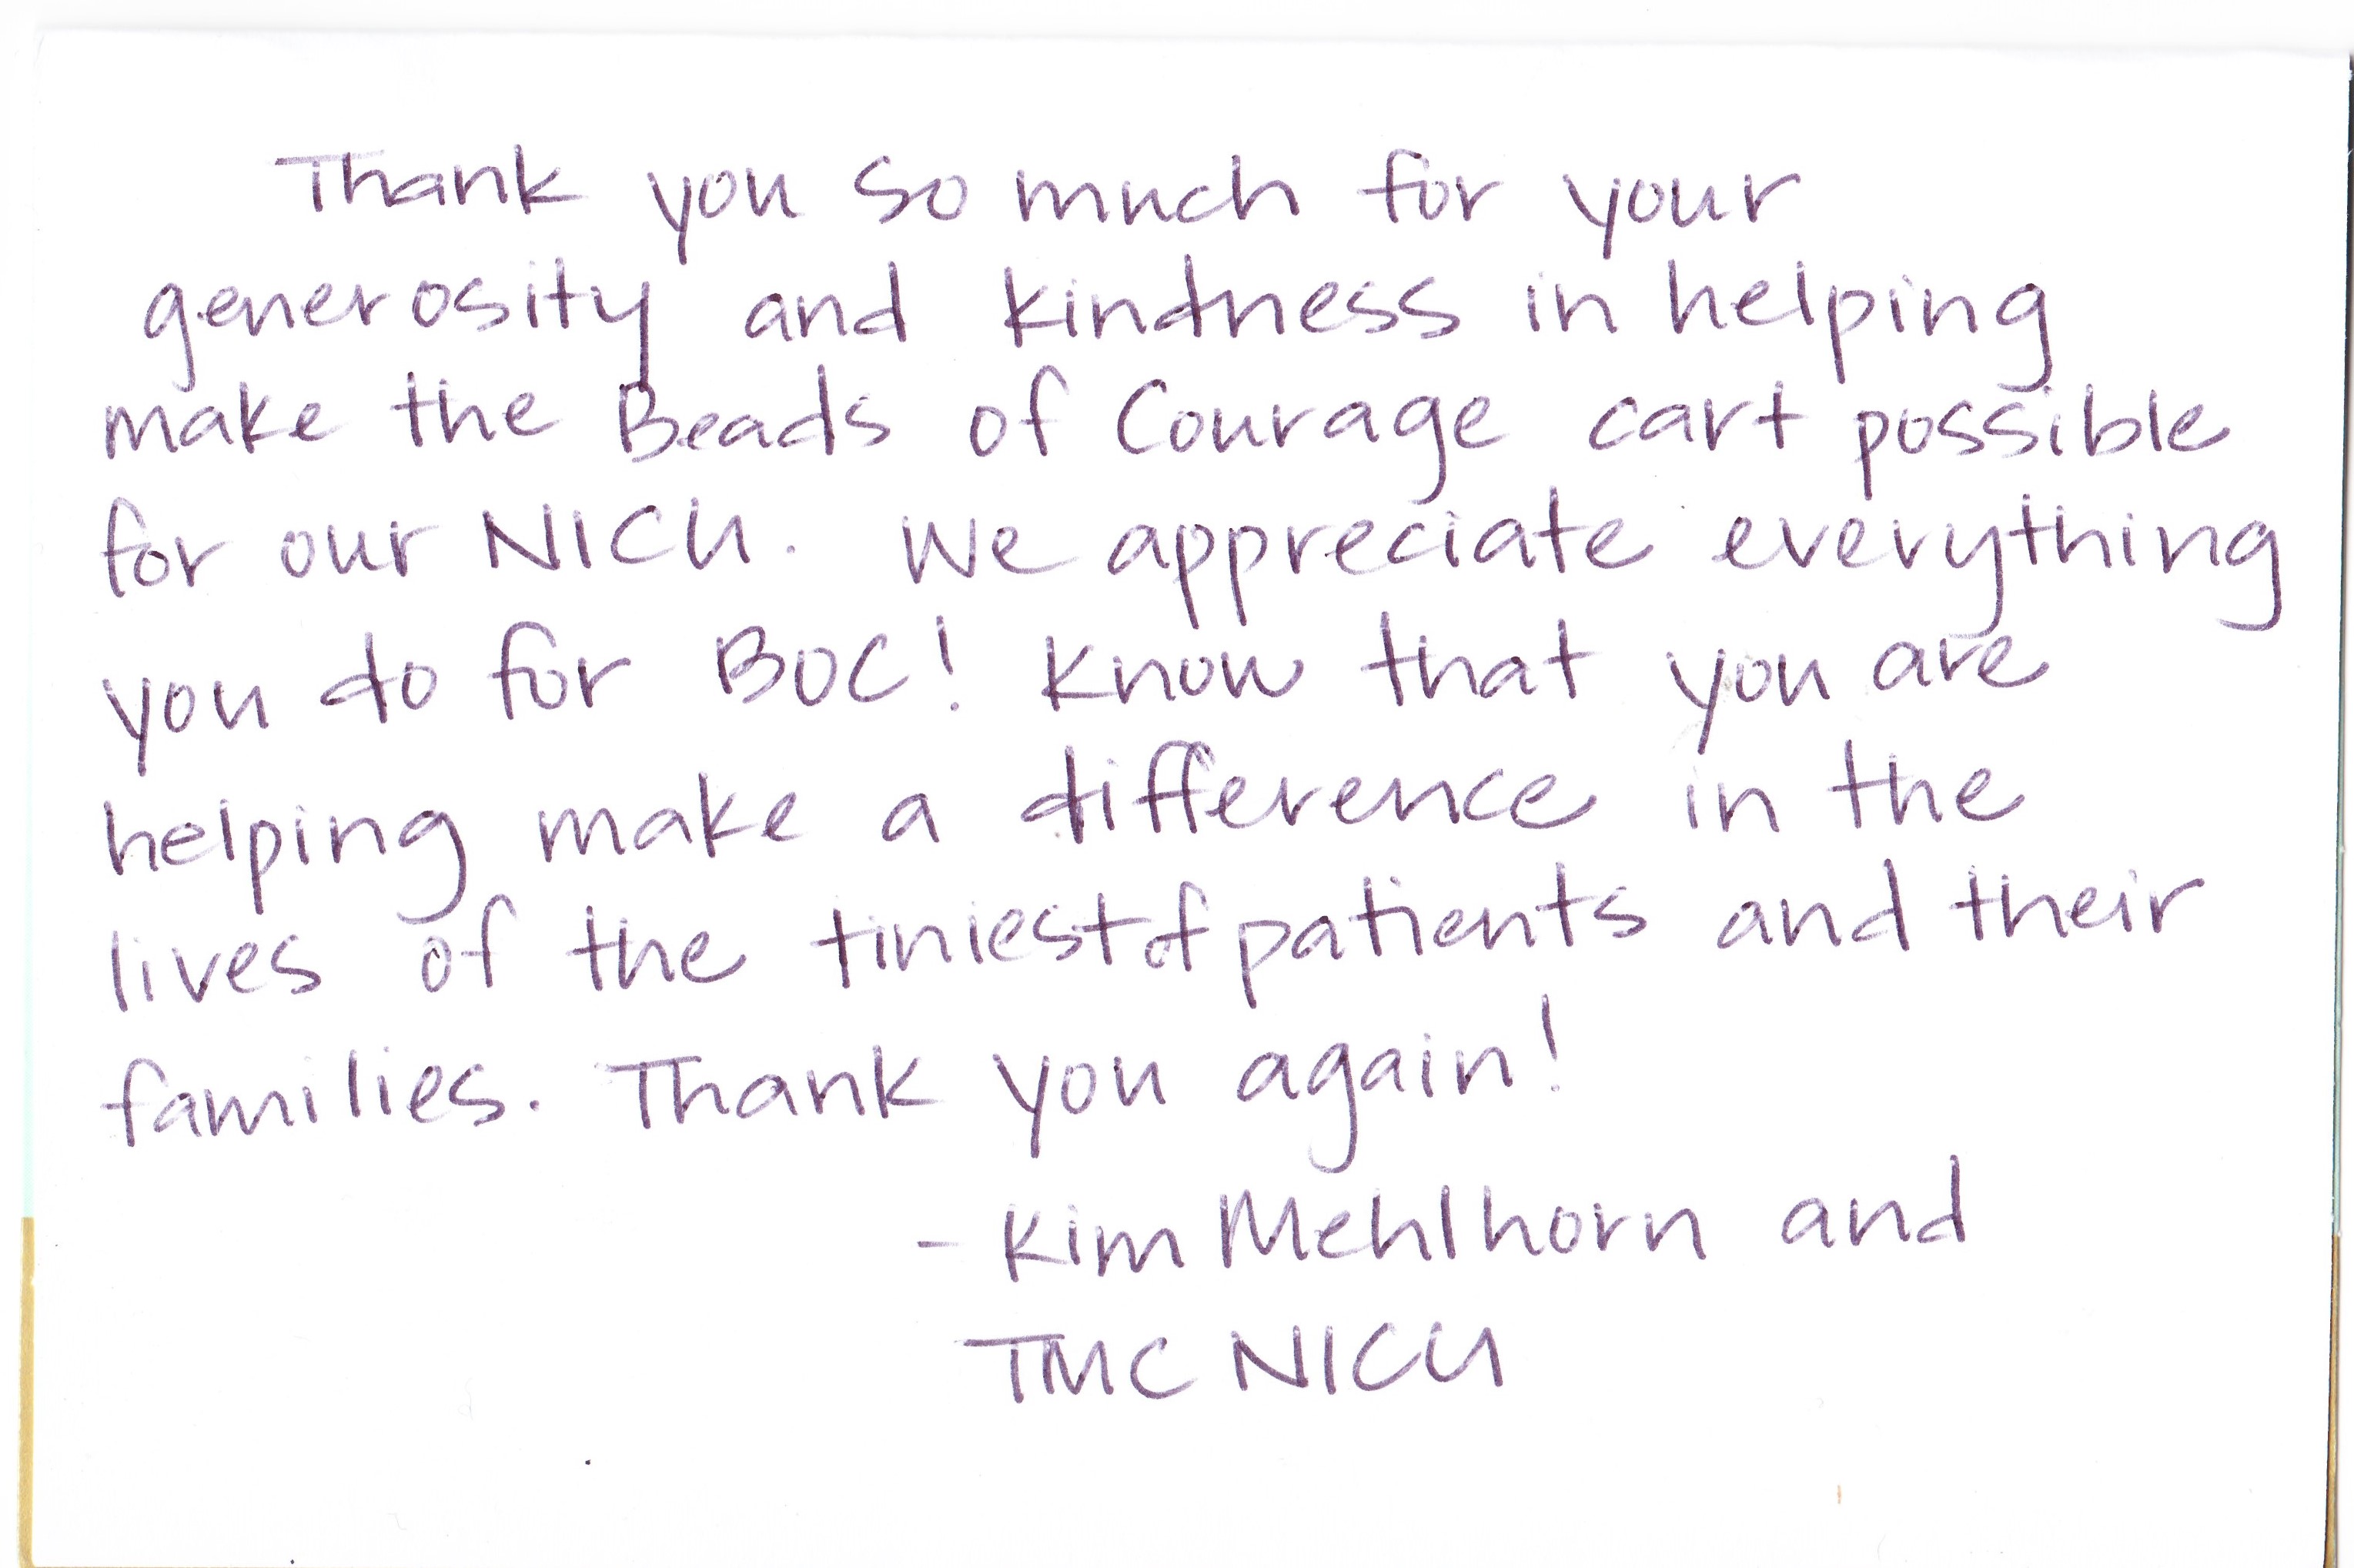 Thank you so much for your
generosity and kindness in helping
make the Beads of Courage cart possible
for our NICU. We appreciate everything
you do for BOC! Know that you are
helping make a difference in the
lives of the tiniest of patients and their
families. Thank you again!
- Kim Mehlhorn and
TMC NICU